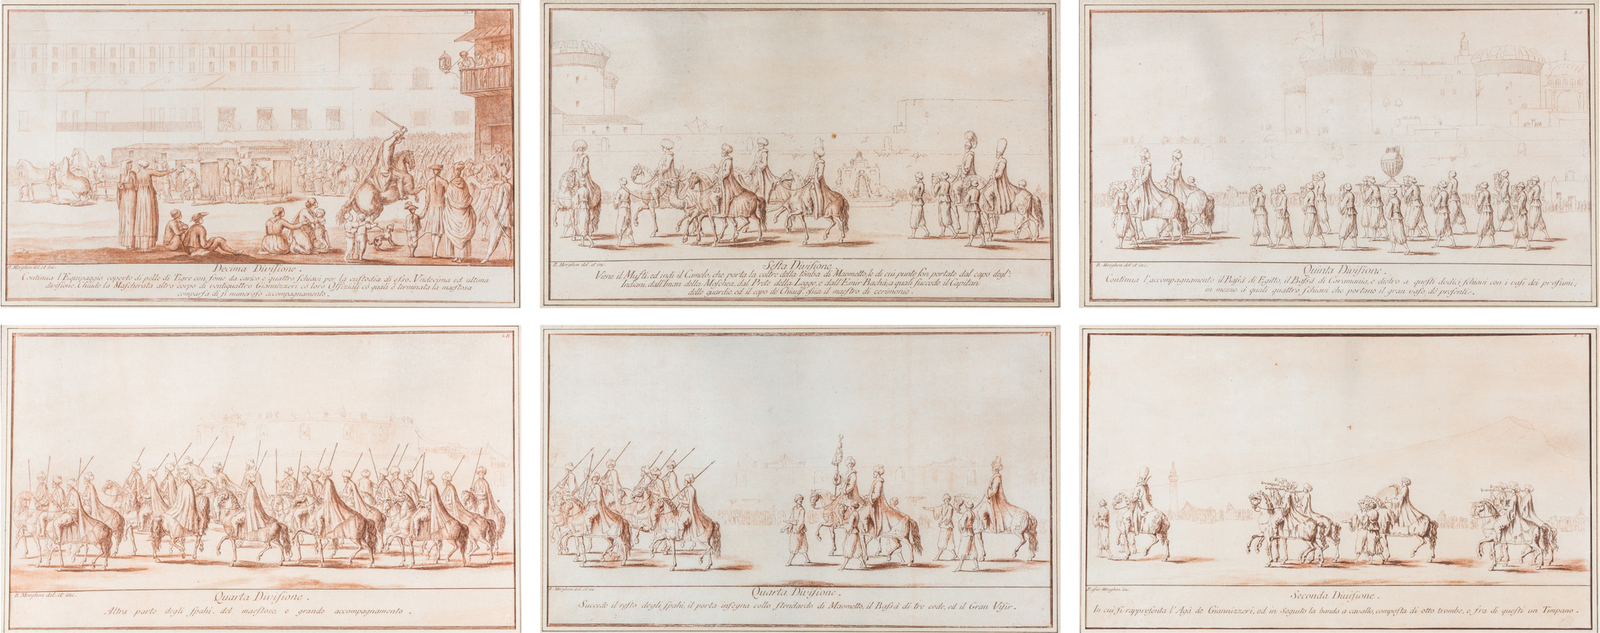 R. Morghen del. et inc.
Decima Divisione.
Continua l'Equipaggio coperto di pelle di Tigre con some da carico e quattro schiavi per la custodia di esso. Undecima ed ultima
divisione. Chiude la Mascherata altro corpo di ventiquattro Giannizzeri co loro Offiziali co quali è terminata la maestosa
comparsa di sì numeroso accompagnamento.
R. Morghen del. et inc.
Sesta Divisione.
Viene il Muftì, ed indi il Camelo, che porta la coltre della tomba di Maometto, le di cui punte son portate dal capo degl'
Indiani, dall'Imam della Moschea, dal Prete della Legge, e dall'Emir Bachì; a quali succede il Capitan
delle guardie ed il capo de Chiaus, ossia il maestro di cerimonie.
R. Morghen del. et inc.
Quinta Divisione.
Continua l'accompagnamento il Bassà di Egitto, il Bassà di Caramania, e dietro a questi dodici schiavi con i vasi dei profumi,
in mezzo a quali quattro schiavi che portano il gran vaso di presenti.
R. Morghen del. et inc.
Quarta Divisione.
Altra parte degli spahì, del maestoso e grande accompagnamento.
R. Morghen del. et inc.
Quarta Divisione.
Succede il resto degli spahì, il porta insegna collo stendardo di Maometto, il Bassà di tre code, ed il Gran Visir.
Morghen inc.
Seconda Divisione.
In cui si rappresenta l'Agà de Giannizzeri, ed in seguito la banda a cavallo, composta di otto trombe, e fra di questi un Timpano.